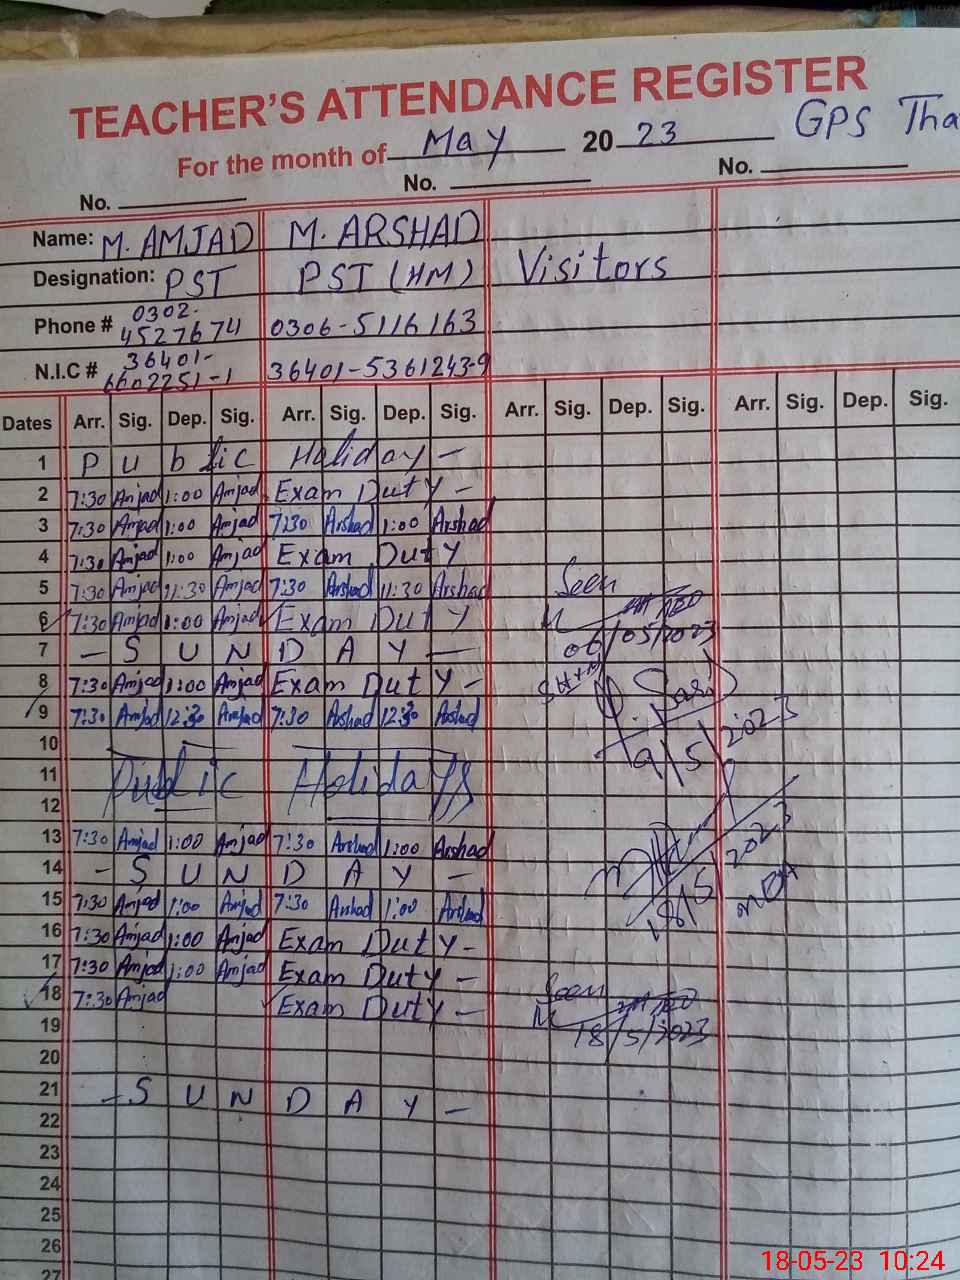 TEACHER'S ATTENDANCE REGISTER
For the month of May 2023 GPS Tha
No. No. No.
Name: M. AMJAD M. ARSHAD
Designation: PST PST (HM) Visitors
Phone # 0302-4527674 0306-5116163
N.I.C # 36401-6602251-1 36401-5361243-9
Dates Arr. Sig. Dep. Sig. Arr. Sig. Dep. Sig. Arr. Sig. Dep. Sig. Arr. Sig. Dep. Sig.
1 Public Holiday -
2 7:30 Amjad 1:00 Amjad Exam Duty -
3 7:30 Amjad 1:00 Amjad 7:30 Arshad 1:00 Arshad
4 7:30 Amjad 1:00 Amjad Exam Duty
5 7:30 Amjad 11:30 Amjad 7:30 Arshad 11:30 Arshad Seen
6 7:30 Amjad 1:00 Amjad Exam Duty
7 - SUNDAY - 06/05/2023
8 7:30 Amjad 1:00 Amjad Exam Duty -
9 7:30 Amjad 12:30 Amjad 7:30 Arshad 12:30 Arshad
10 9/5/2023
11 Public Holidays
12
13 7:30 Amjad 1:00 Amjad 7:30 Arshad 1:00 Arshad
14 - SUNDAY - 18/5/2023
15 7:30 Amjad 1:00 Amjad 7:30 Arshad 1:00 Arshad MEA
16 7:30 Amjad 1:00 Amjad Exam Duty -
17 7:30 Amjad 1:00 Amjad Exam Duty -
18 7:30 Amjad Exam Duty - Seen
19 18/5/2023
20
21 - SUNDAY -
22
23
24
25
26
27
18-05-23 10:24